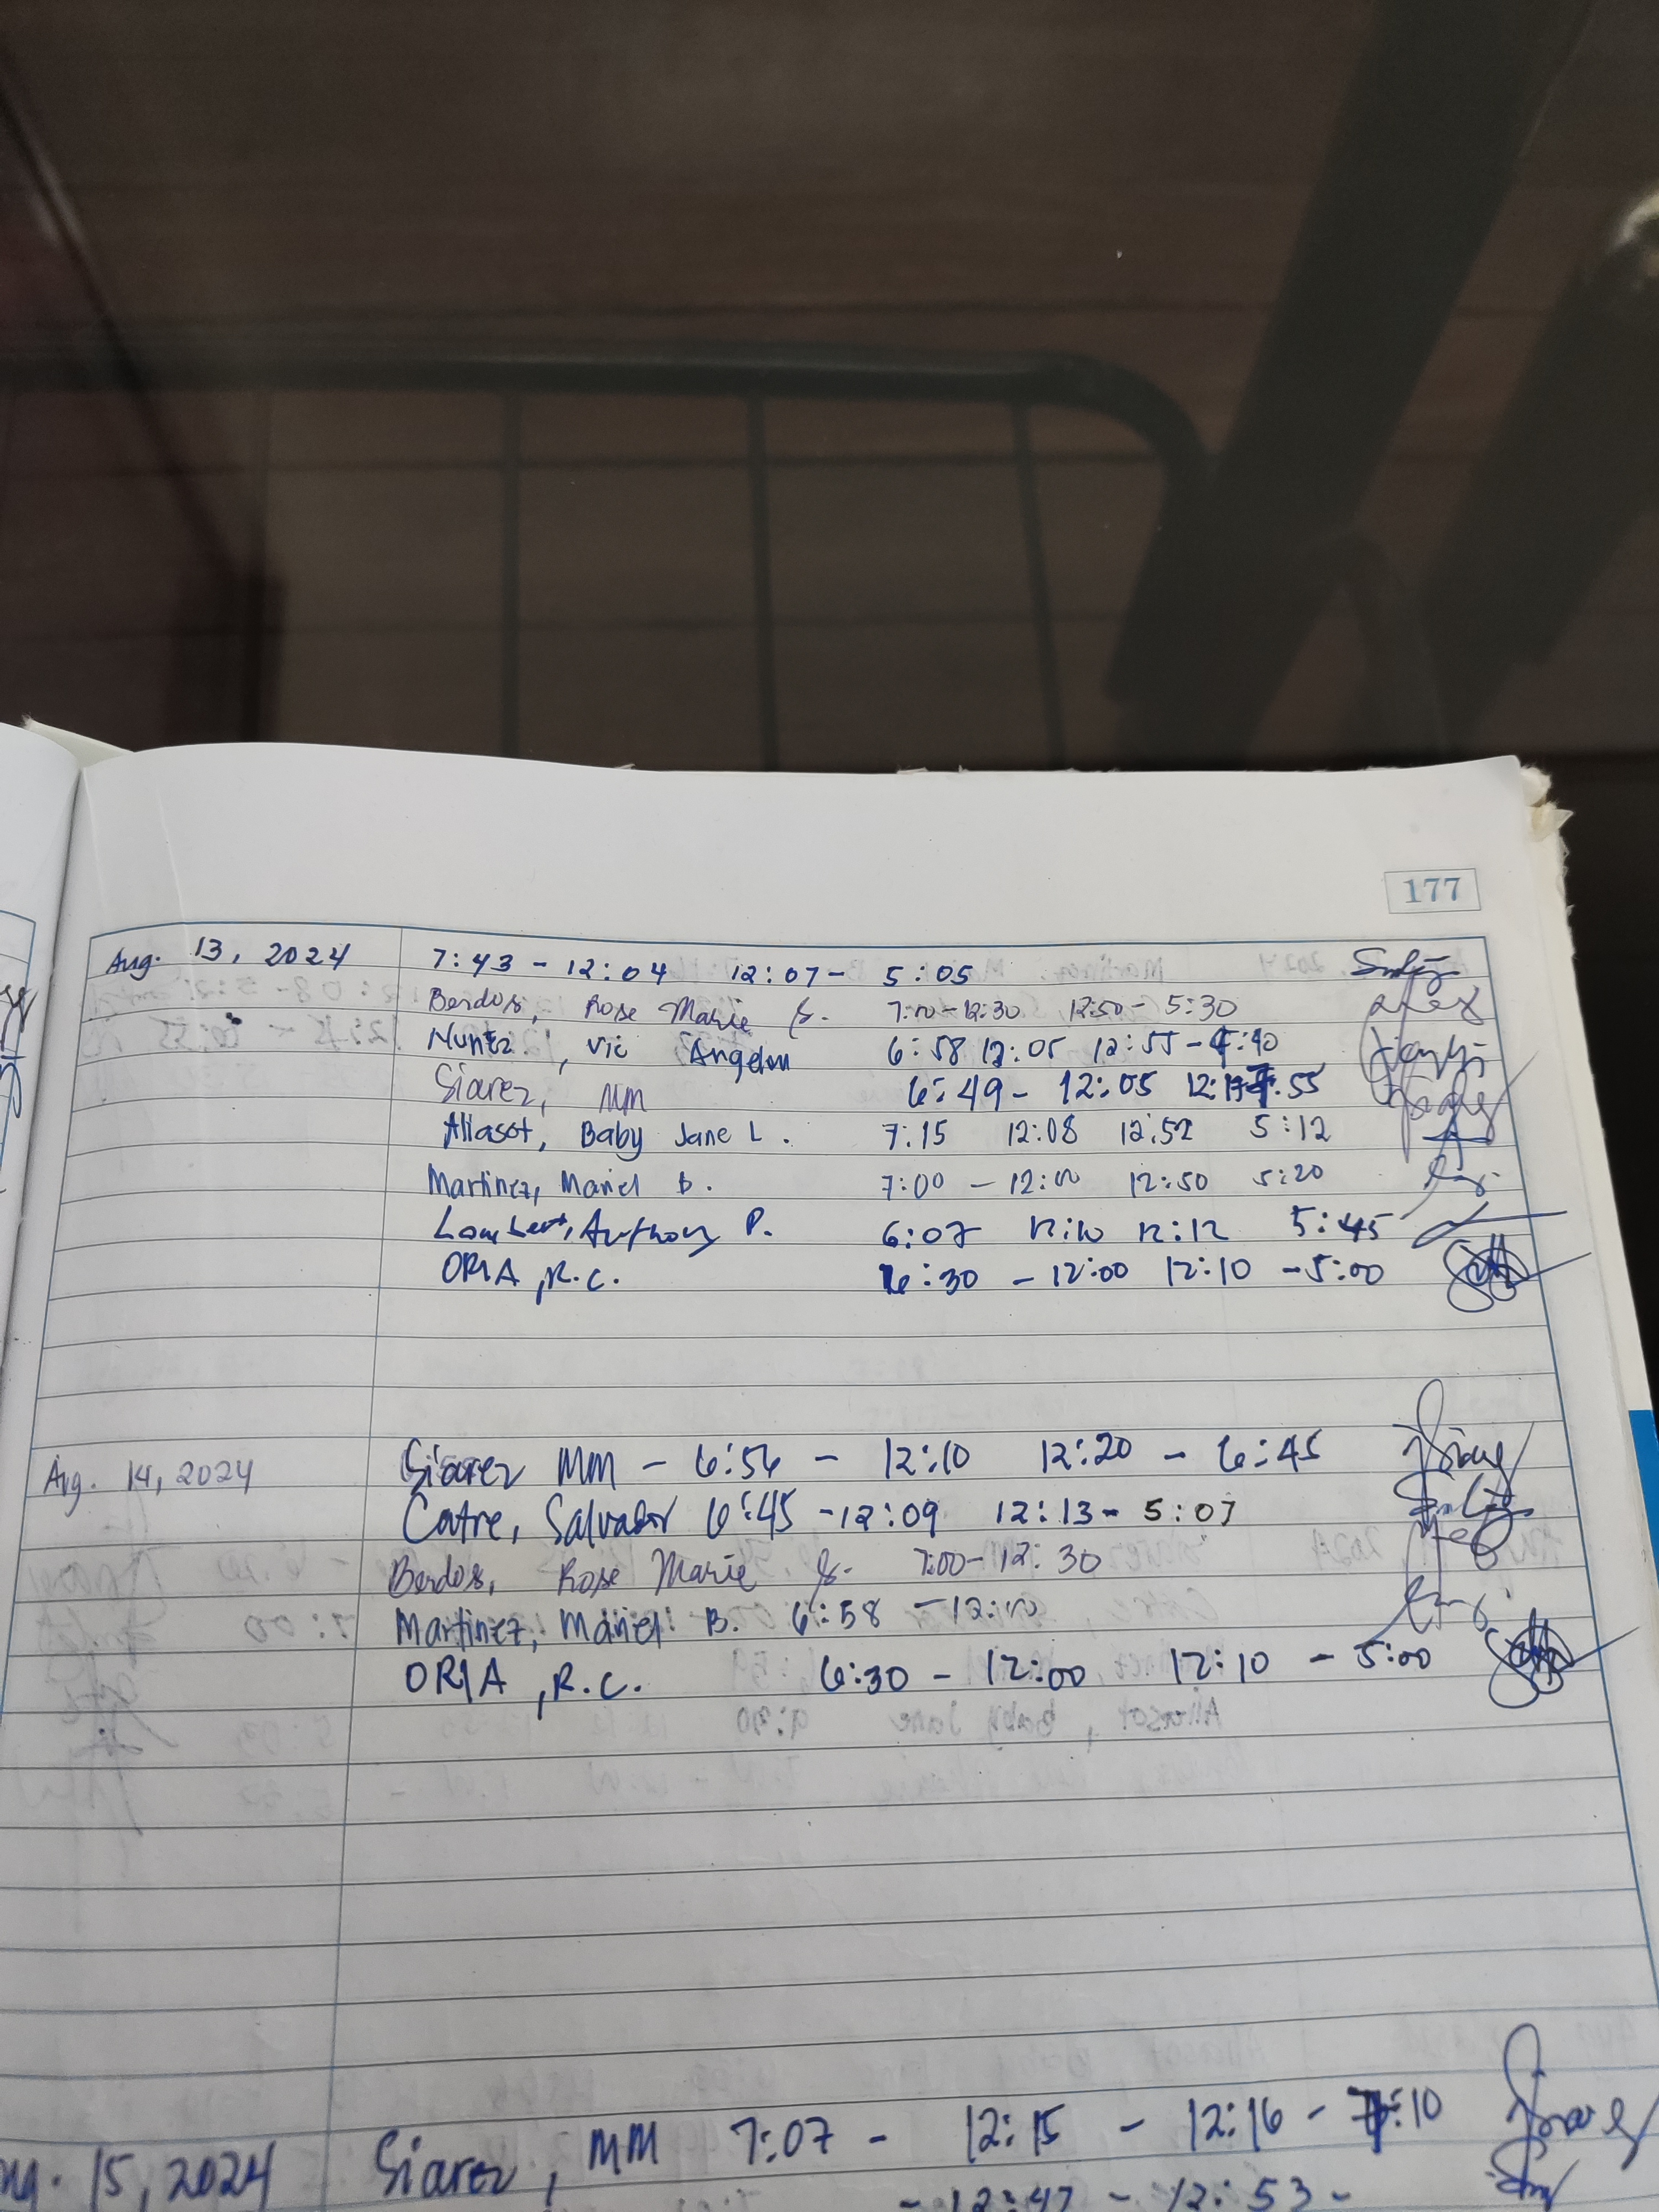 177
Aug. 13, 2024 7:43 - 12:04 12:07 - 5:05
Berdos, Rose Marie S. 7:00 - 12:30 12:50 - 5:30
Muntz, Vic Angelou 6:58 12:05 12:55 - :40
Siarez, MM 6:49 - 12:05 .55
Aliasot, Baby Jane L. 7:15 12:08 12:52 5:12
Martinez, Mariel B. 7:00 - 12:00 12:50 5:20
Lambert, Anthony P. 6:07 12:10 12:12 5:45
ORIA, R.C. 6:30 - 12:00 12:10 - 5:00
Aug. 14, 2024 Siarez MM - 6:56 - 12:10 12:20 - 6:45
Catre, Salvador 6:45 - 12:09 12:13 - 5:07
Berdos, Rose Marie S. 7:00 - 12:30
Martinez, Mariel B. 6:58 - 12:00
ORIA, R.C. 6:30 - 12:00 12:10 - 5:00
15, 2024 Siarez, MM 7:07 - 12:15 - 12:16 - :10
- 12:47 - 12:53 -